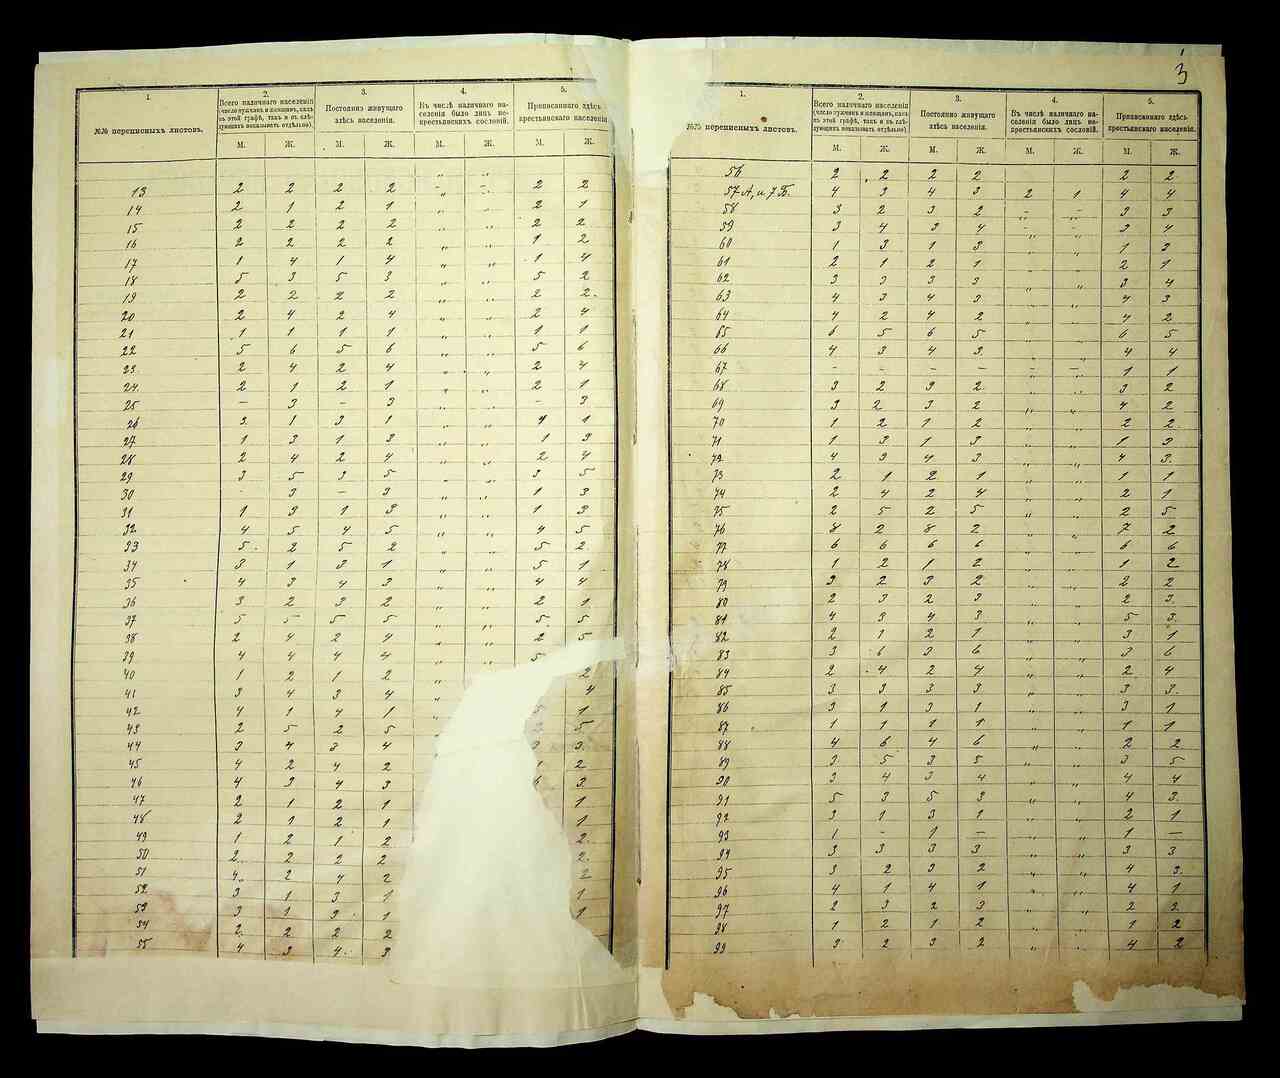 3
1. 2. 3. 4. 5.
№№ переписныхъ листовъ. Всего наличнаго населенія (число мужчин и женщинъ, какъ въ этой графѣ, такъ и въ слѣдующихъ показывать отдѣльно). Постоянно живущаго здѣсь населенія. Въ числѣ наличнаго населенія было лицъ некрестьянскихъ сословій. Приписаннаго здѣсь крестьянскаго населенія.
М. Ж. М. Ж. М. Ж. М. Ж.
13 2 2 2 2 „ „ 2 2
14 2 1 2 1 „ „ 2 1
15 2 2 2 2 „ „ 2 2
16 2 2 2 2 „ „ 1 2
17 1 4 1 4 „ „ 1 4
18 5 3 5 3 „ „ 5 2
19 2 2 2 2 „ „ 2 2
20 2 4 2 4 „ „ 2 4
21 1 1 1 1 „ „ 1 1
22 5 6 5 6 „ „ 5 6
23 2 4 2 4 „ „ 2 4
24 2 1 2 1 „ „ 2 1
25 – 3 – 3 „ „ – 3
26 3 1 3 1 „ „ 4 1
27 1 3 1 3 „ „ 1 3
28 2 4 2 4 „ „ 2 4
29 3 5 3 5 „ „ 3 5
30 – 3 – 3 „ „ 1 3
31 1 3 1 3 „ „ 1 3
32 4 5 4 5 „ „ 4 5
33 5 2 5 2 „ „ 5 2
34 3 1 3 1 „ „ 5 1
35 4 3 4 3 „ „ 4 4
36 3 2 3 2 „ „ 2 1
37 5 5 5 5 „ „ 5 5
38 2 4 2 4 „ „ 2 5
39 4 4 4 4 „ „ 5
40 1 2 1 2 „ 2
41 3 4 3 4 „ 4
42 4 1 4 1 „ 5 1
43 2 5 2 5 2 5
44 3 4 3 4 3 3
45 4 2 4 2 1 2
46 4 3 4 3 6 3
47 2 1 2 1 1
48 2 1 2 1 1
49 1 2 1 2 2
50 2 2 2 2 2
51 4 2 4 2 2
52 3 1 3 1 1
53 3 1 3 1 1
54 2 2 2 2
55 4 3 4 3
1. 2. 3. 4. 5.
№№ переписныхъ листовъ. Всего наличнаго населенія (число мужчин и женщинъ, какъ въ этой графѣ, такъ и въ слѣдующихъ показывать отдѣльно). Постоянно живущаго здѣсь населенія. Въ числѣ наличнаго населенія было лицъ некрестьянскихъ сословій. Приписаннаго здѣсь крестьянскаго населенія.
М. Ж. М. Ж. М. Ж. М. Ж.
56 2 2 2 2 2 2
57 А, и 7 Б. 4 3 4 3 2 1 4 4
58 3 2 3 2 „ „ 3 3
59 3 4 3 4 „ „ 3 4
60 1 3 1 3 „ „ 1 3
61 2 1 2 1 „ „ 2 1
62 3 3 3 3 „ „ 3 4
63 4 3 4 3 „ „ 4 3
64 4 2 4 2 „ „ 4 2
65 6 5 6 5 „ „ 6 5
66 4 3 4 3 „ „ 4 4
67 – – – – – – 1 1
68 3 2 3 2 „ „ 3 2
69 3 2 3 2 „ „ 4 2
70 1 2 1 2 „ „ 2 2
71 1 3 1 3 „ „ 1 3
72 4 3 4 3 „ „ 4 3
73 2 1 2 1 „ „ 1 1
74 2 4 2 4 „ „ 2 1
75 2 5 2 5 „ „ 2 5
76 8 2 8 2 „ „ 7 2
77 6 6 6 6 „ „ 6 6
78 1 2 1 2 „ „ 1 2
79 3 2 3 2 „ „ 2 2
80 2 3 2 3 „ „ 2 3
81 4 3 4 3 „ „ 5 3
82 2 1 2 1 „ „ 3 1
83 3 6 3 6 „ „ 3 6
84 2 4 2 4 „ „ 2 4
85 3 3 3 3 „ „ 3 3
86 3 1 3 1 „ „ 3 1
87 1 1 1 1 „ „ 1 1
88 4 6 4 6 „ „ 2 2
89 3 5 3 5 „ „ 3 5
90 3 4 3 4 „ „ 4 4
91 5 3 5 3 „ „ 4 3
92 3 1 3 1 „ „ 2 1
93 1 – 1 – „ „ 1 –
94 3 3 3 3 „ „ 3 3
95 3 2 3 2 „ „ 4 3
96 4 1 4 1 „ „ 4 1
97 2 3 2 3 „ „ 2 2
98 1 2 1 2 „ „ 1 2
99 3 2 3 2 „ „ 4 2